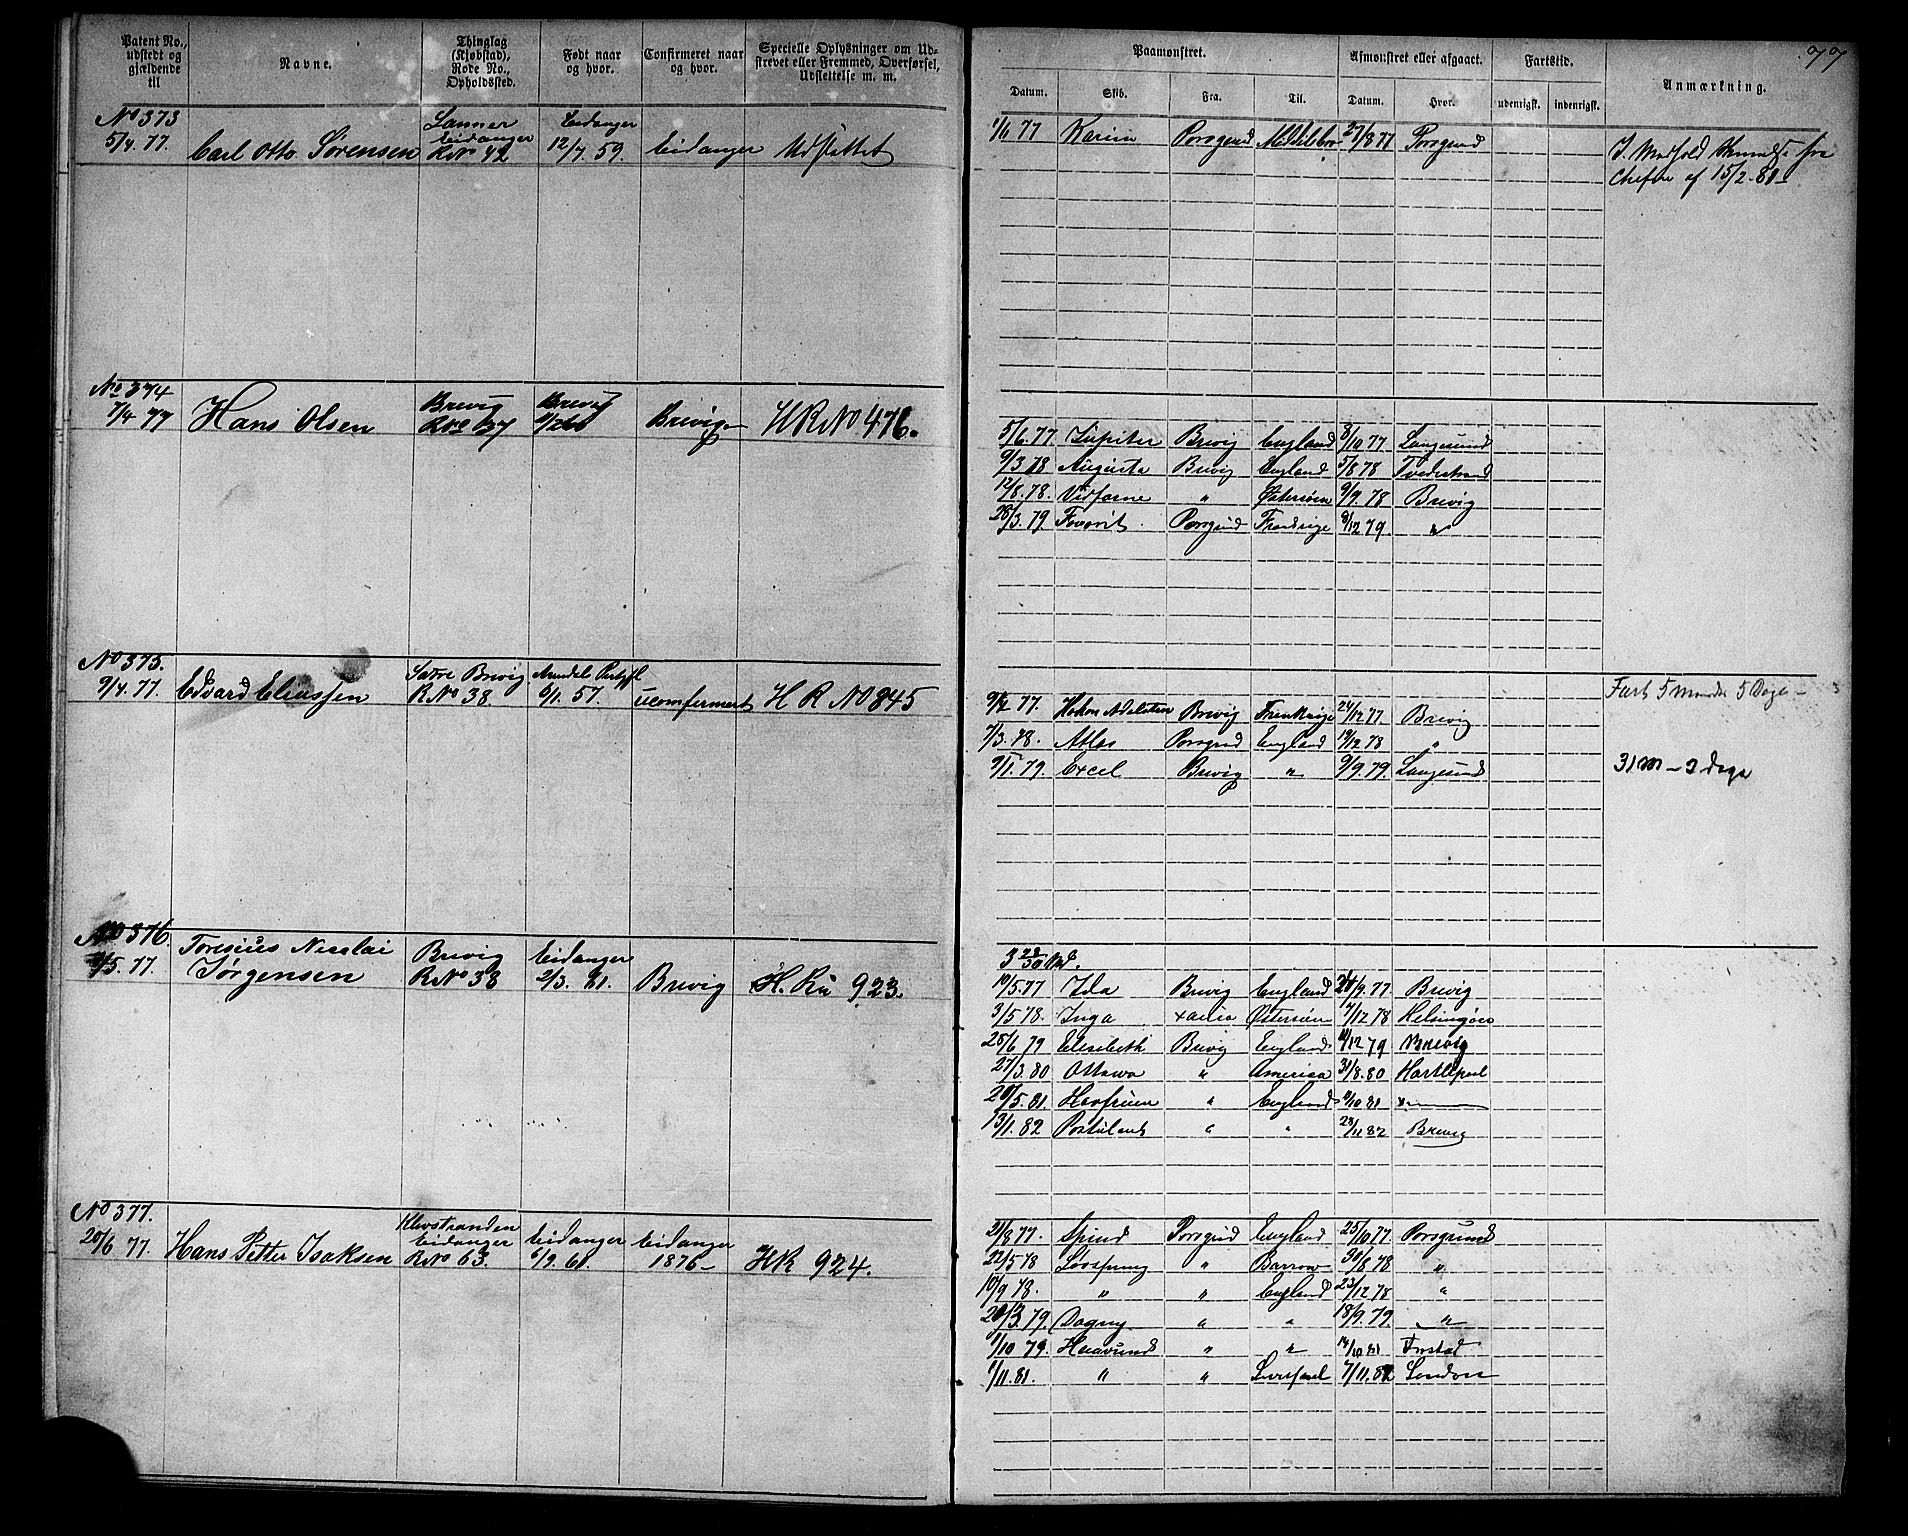 Patent No., udstedt og gjældende til
Navne.
Thinglag (Kjøbstad), Rode No., Opholdssted.
Født naar og hvor.
Confirmeret naar og hvor.
Specielle Oplysninger om Udskrevet eller Fremmed, Overførsel, Udslettelse m. m.
Paamønstret.
Afmønstret eller afgaaet.
Fartstid.
Anmærkning.
77
Datum.
Skib.
Fra.
Til.
Datum.
Hvor.
udenrigsk.
indenrigsk.
No 373
5/4. 77.
Carl Otto Sørensen
Eidanger
RNo 42
Eidanger
12/7. 59.
Eidanger
Udslettet
1/6 77 Karin Porsgrund 27/8 77 Porsgrund
Chefen af 15/2-81
No 374
7/4 77
Hans Olsen
Brevig
Brevig
Brevig
HR No 476.
5/6. 77. Jupiter Brevig England 8/10 77 Langesund
9/3 78 Augusta Brevig England 5/8 78 Tvedestrand
12/8. 78. Vidfarne " Østersøen 9/9. 78 Brevig
28/3. 79. Favorit. Porsgrund Frankrige 8/12 79. "
No 375.
9/4. 77.
Edvard Eliassen
Brevig
RNo 38.
6/1. 57.
uconfermert
H R No 845
9/4 77. Hakon Adelsten Brevig Frankrige 24/12 77. Brevig
7/3. 78. Atlas Porsgrd England 19/12 78 "
9/1. 79. Excel Brevig " 9/9. 79. Langesund
Fart 5 Maander 5 Dage
31 M - 3 Dage
No 376.
/5. 77.
Nicolai
Jørgensen
Brevig
RNo 38
Eidanger
2/3. 61.
Brevig
H. Ru 923.
3 28/30
19/5. 77 Ida Brevig England /9. 77 Brevig
3/5 78. Inga Østersøen 7/12 78 Helsingør
25/6 79 Elisebeth Brevig England /12 79 Brevig
27/3. 80 Ottawa " America 31/8. 80 Hartlepool
20/5. 81. Havfruen " England 11/10 81
13/1. 82 Postulant " " 28/11 82 Brevig
No 377.
20/6 77.
Hans Petter Isaksen
Klevstranden
Eidanger
RNo 63.
Eidanger
6/9. 61.
Eidanger
1876
HR 924.
21/8 77. Spind Porsgrd England 25/10 77. Porsgrund
22/5 78 Løvspring " Barrow 30/8 78 "
10/9 78. " " England 23/12 78 "
20/3. 79. Dagny " " 18/9. 79. "
1/10 79. " " 14/10 81
1/11. 81. " " Liverpool 7/11. 82 London